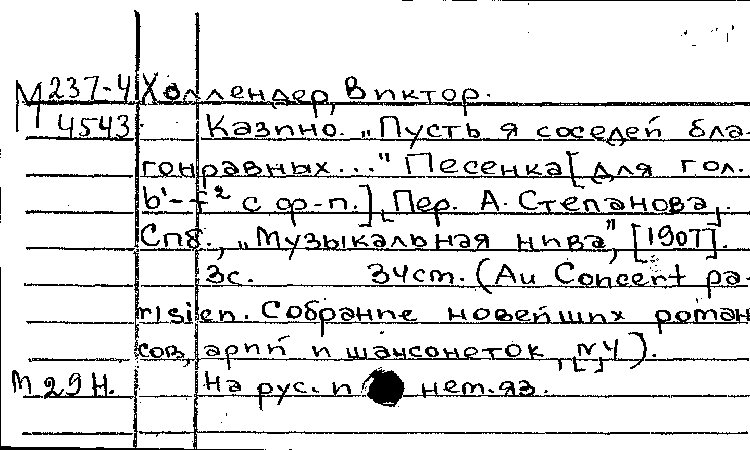 М 237-4 Холлендер, Виктор.
4543 Казино. „Пусть я соседей бла-
гонравных..." Песенка [для гол.
b'-f² с ф-п.] [Пер. А. Степанова].
Спб., „Музыкальная нива", [1907].
3с. 34см. (Au Concert pa-
risien. Собрание новейших роман
сов, арий и шансонеток, [№4]).
М 29 Н. На рус. и нем. яз.